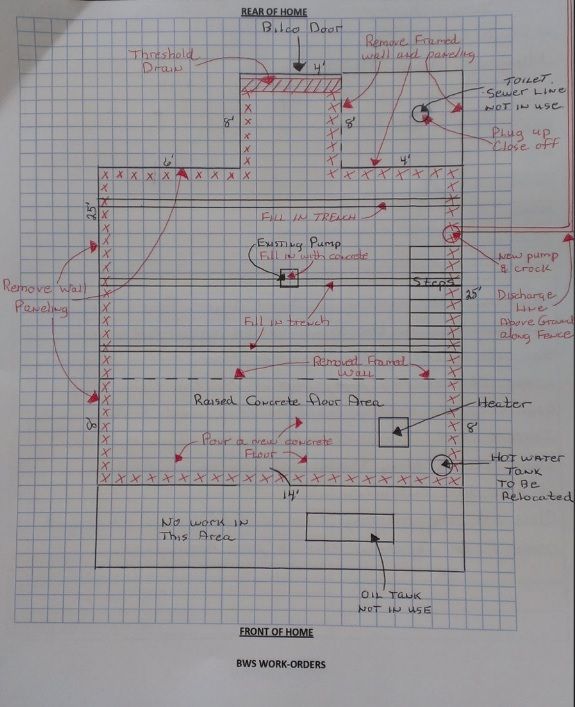 REAR OF HOME
Bilco Door
Threshold
Drain
4'
Remove Framed
wall and paneling
TOILET
Sewer Line
NOT IN USE
Plug up
Close off
8'
8'
6'
4'
25'
FILL IN TRENCH
Existing Pump
Fill in with concrete
New pump
& crock
Steps
25'
Remove Wall
Paneling
Discharge
Line
Above Ground
along Fence
Fill in trench
Removed Framed
Wall
Raised Concrete Floor Area
Heater
8'
8'
Pour a new concrete
Floor
HOT WATER
TANK
TO BE
Relocated
14'
No work in
This Area
OIL TANK
NOT IN USE
FRONT OF HOME
BWS WORK-ORDERS